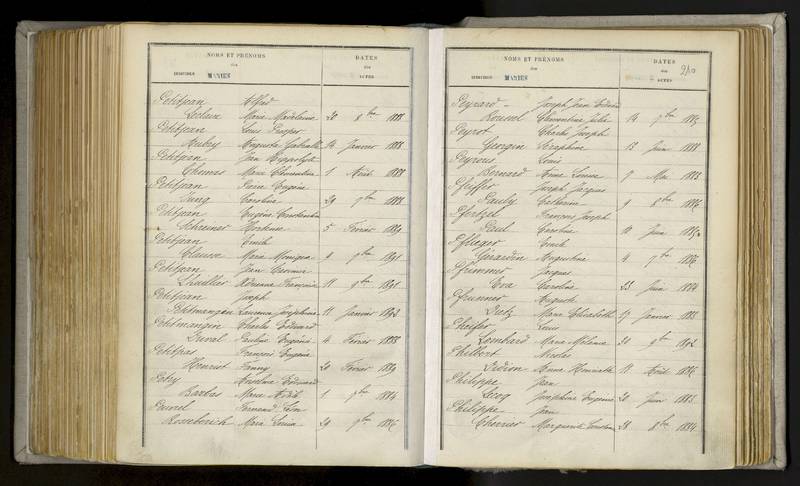 NOMS ET PRÉNOMS
des
INDIVIDUS MARIÉS
DATES
des
ACTES
Petitjean Alfred
Leclerc Marie Madeleine 20 8bre 1888
Petitjean Louis Prosper
Aubry Augusta Gabrielle 14 Janvier 1888
Petitjean Jean Hippolyte
Thomas Marie Clémentine 1 Août 1888
Petitjean Pierre Eugène
Jung Caroline 29 9bre 1888
Petitjean Eugène Constantin
Schreiner Hortense 5 Février 1889
Petitjean Emile
Clausse Marie Monique 9 9bre 1891
Petitjean Jean
Lhuillier Adrienne Françoise 11 9bre 1891
Petitjean Joseph
Petitmangin Laurence Joséphine 11 Janvier 1892
Petitmangin Charles Edouard
Duval Pauline Eugénie 4 Février 1888
Petitpas François Eugène
Henriet Fanny 20 Février 1889
Petry Anselme Edouard
Barbas Marie 1 1884
Fernand Léon
Marie Louise 29 1886
NOMS ET PRÉNOMS
des
INDIVIDUS MARIÉS
DATES
des
ACTES
210
Peyrard – Joseph Jean
Roussel Clémentine Julie 14 1885
Peyrot Charles Joseph
Georgin Séraphine 15 Juin 1888
Peyrous Louis
Bernard Anne Louise 9 Mai 1883
Pfeiffer Joseph Jacques
Pauly Catherine 9 8bre 1886
Pfertzel François Joseph
Paul Caroline 10 Juin
Pfleger Emile
Girardin Augustine 4 1886
Pfrimmer Jacques
Eva Caroline 23 Juin 1884
Pfrunner Auguste
Dietz Marie Elisabeth 17 Janvier 1888
Louis
Lombard Marie Mélanie 20 9bre 1892
Philbert Nicolas
Didion Anne Henriette 11 Août 1886
Philippe Jean
Lecoq Joséphine Eugénie 20 Juin 1885
Philippe Jean
Cherrier Marguerite 28 8bre 1884